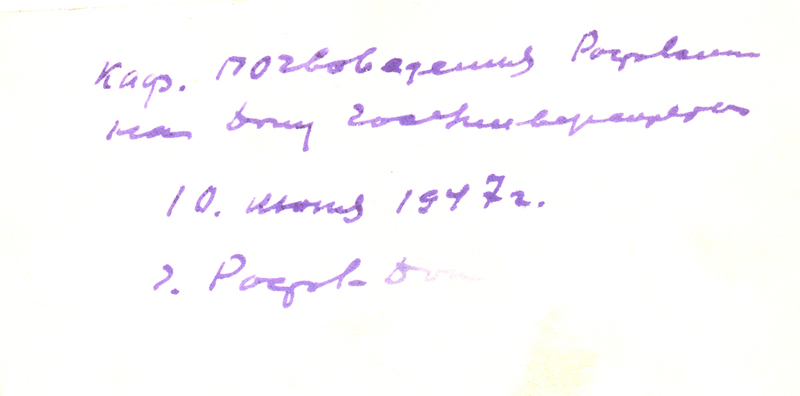 Каф. почвоведения Ростовском
на Дону госуниверситета
10. июня 1947 г.
г. Ростов-Дон